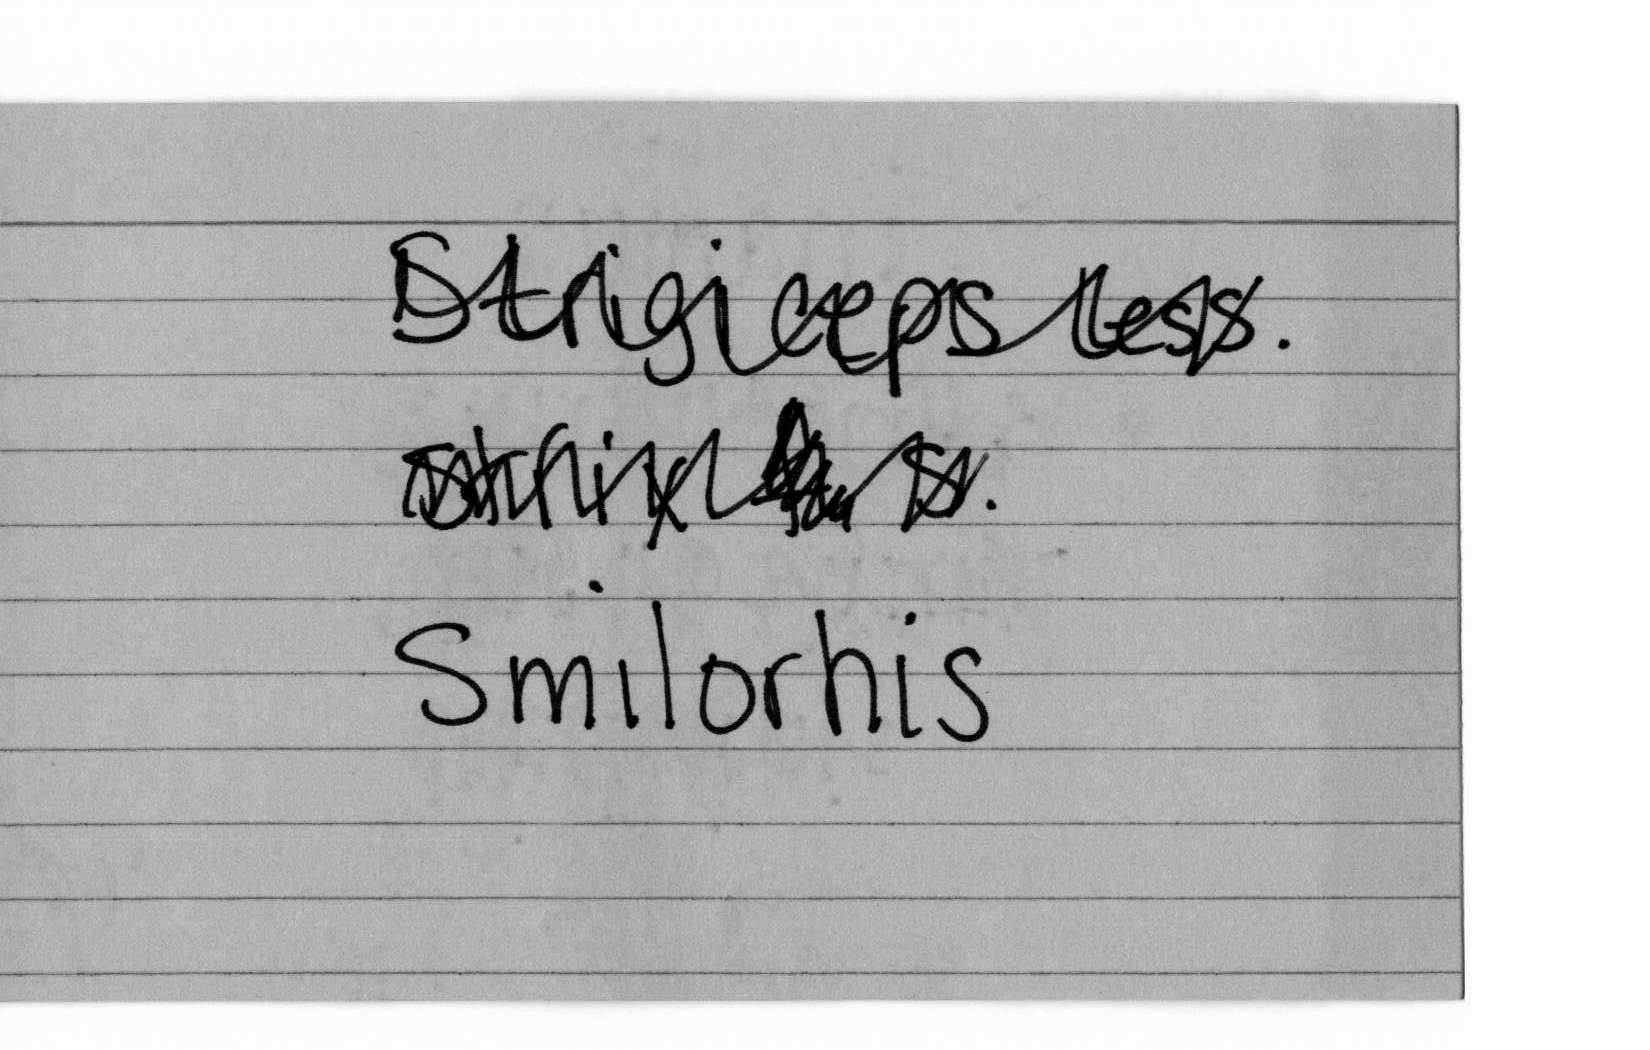 Strigiceps Less.
Smilorhis